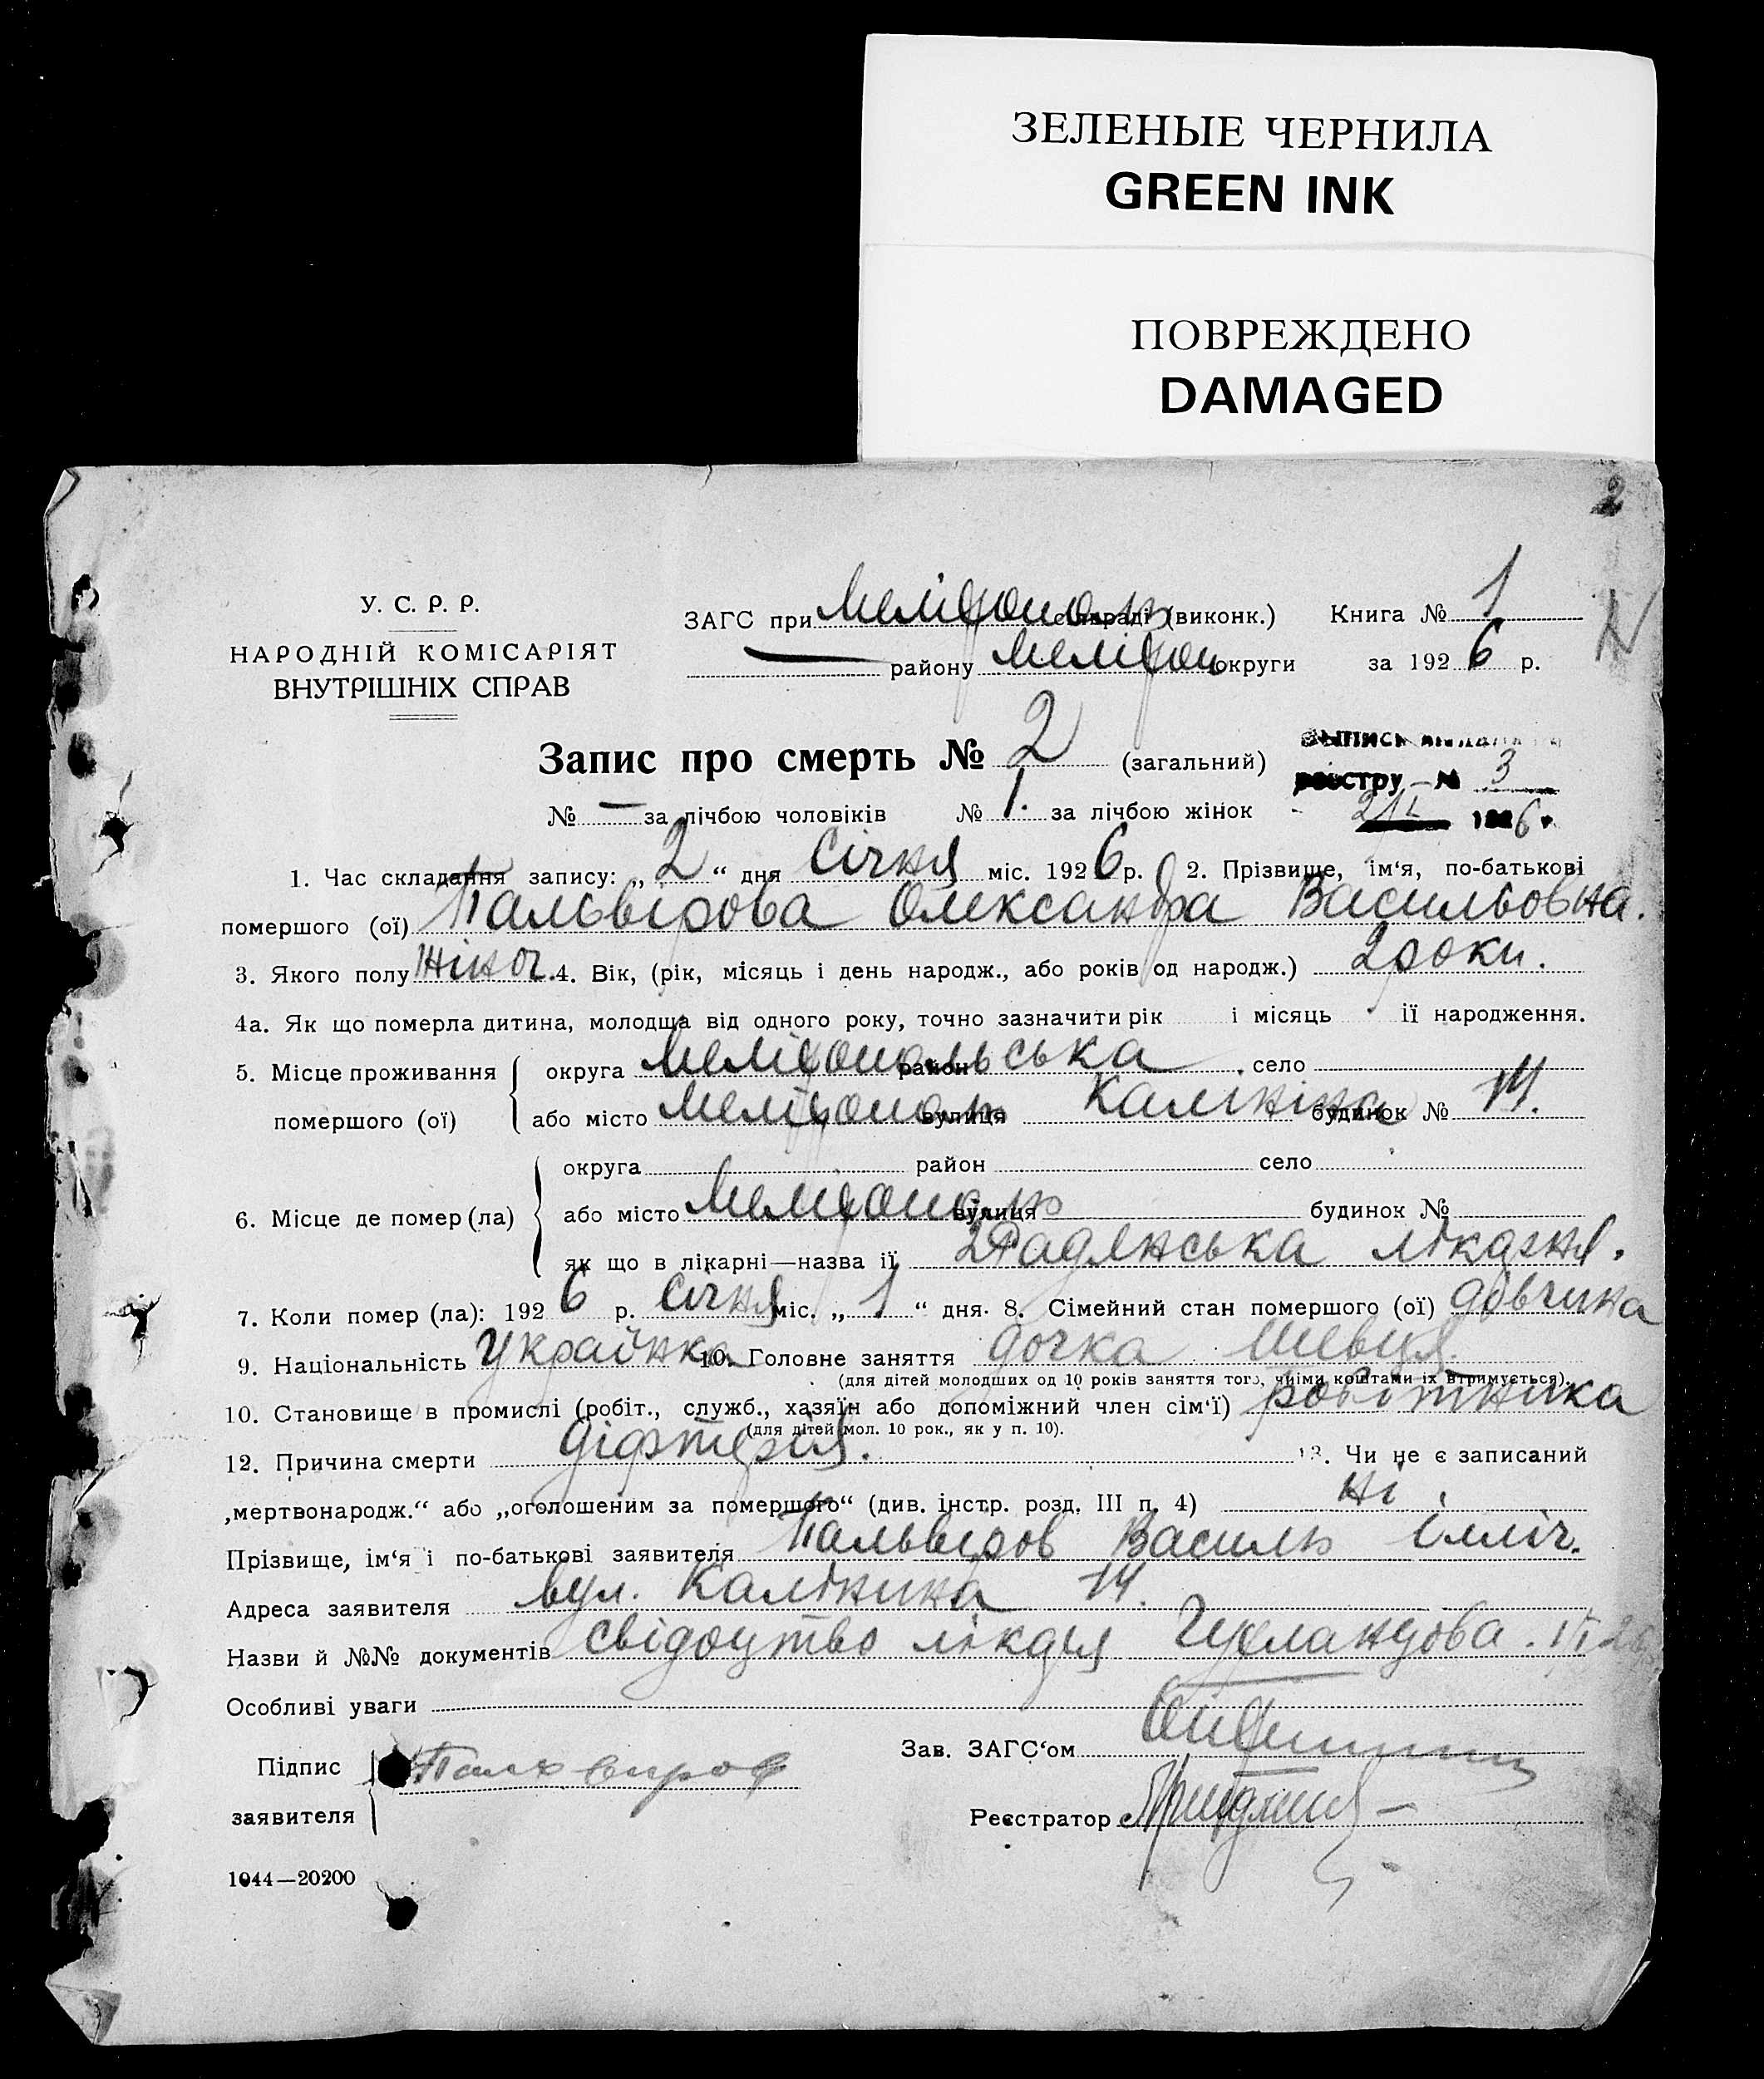 ЗЕЛЕНЫЕ ЧЕРНИЛА
GREEN INK
ПОВРЕЖДЕНО
DAMAGED
2
У. С. Р. Р.
НАРОДНІЙ КОМІСАРІЯТ
ВНУТРІШНІХ СПРАВ
ЗАГС при Мелітополь сільраді (виконк.) Книга № 1
— району Мелітоп округи за 1926 р.
Запис про смерть № 2 (загальний)
реєстру — № 3
№ — за лічбою чоловіків № 1. за лічбою жінок
2/I 1926 р.
1. Час складання запису: „2“ дня Січня міс. 1926 р. 2. Прізвище, ім‘я, по-батькові
помершого (ої) Пальвірова Олександра Васильовна.
3. Якого полу Жіноч. 4. Вік, (рік, місяць і день народж., або років од народж.) 2 роки.
4а. Як що померла дитина, молодща від одного року, точно зазначити рік і місяць її народження.
5. Місце проживання округа Мелітопольська район село
помершого (ої) або місто Мелітополь вулиця Калініна будинок № 14.
округа район село
6. Місце де помер (ла) або місто Мелітополь вулиця будинок №
як що в лікарні—назва її 2 Радянська лікарня.
7. Коли помер (ла): 1926 р. Січня міс. „1“ дня. 8. Сімейний стан помершого (ої) дівчина
9. Національність Українка 10. Головне заняття дочка шевця.
(для дітей молодших од 10 років заняття того, чиїми коштами їх втримується).
10. Становище в промислі (робіт., служб., хазяїн або допоміжний член сім‘ї) робітника
(для дітей мол. 10 рок., як у п. 10).
12. Причина смерти діфтерія. 13. Чи не є записаний
„мертвонародж.“ або „оголошеним за померщого“ (див. інстр. розд. III п. 4) ні.
Прізвище, ім‘я і по-батькові заявителя Пальвіров Василь Ілліч.
Адреса заявителя вул. Калініна 14.
Назви й №№ документів свідоцтво лікаря 1/I 26
Особливі уваги
Зав. ЗАГС‘ом
Підпис Пальвиров
заявителя
Реєстратор
1044—20200